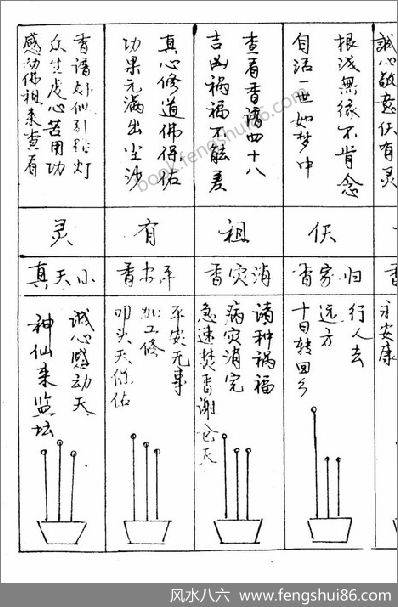 誠心敬意仸有灵
根浅無缘不肯念
自活一世如梦中
查看香譜四十八
吉凶祸福不能差
真心修道佛保佑
功果元满出尘沙
香譜灯仙引路灯
众生虎心苦用功
感动佛祖来查看
仸
祖
有
灵
香
归家香
消灾香
平安香
小天真
永安康
行人去
远方
十日转回乡
诸种祸福
病灾消完
急速焚香谢苍天
平安无事
加工修
叩头天保佑
诚心感动天
神仙来监坛
book.fengshui86.com
风水八六 www.fengshui86.com